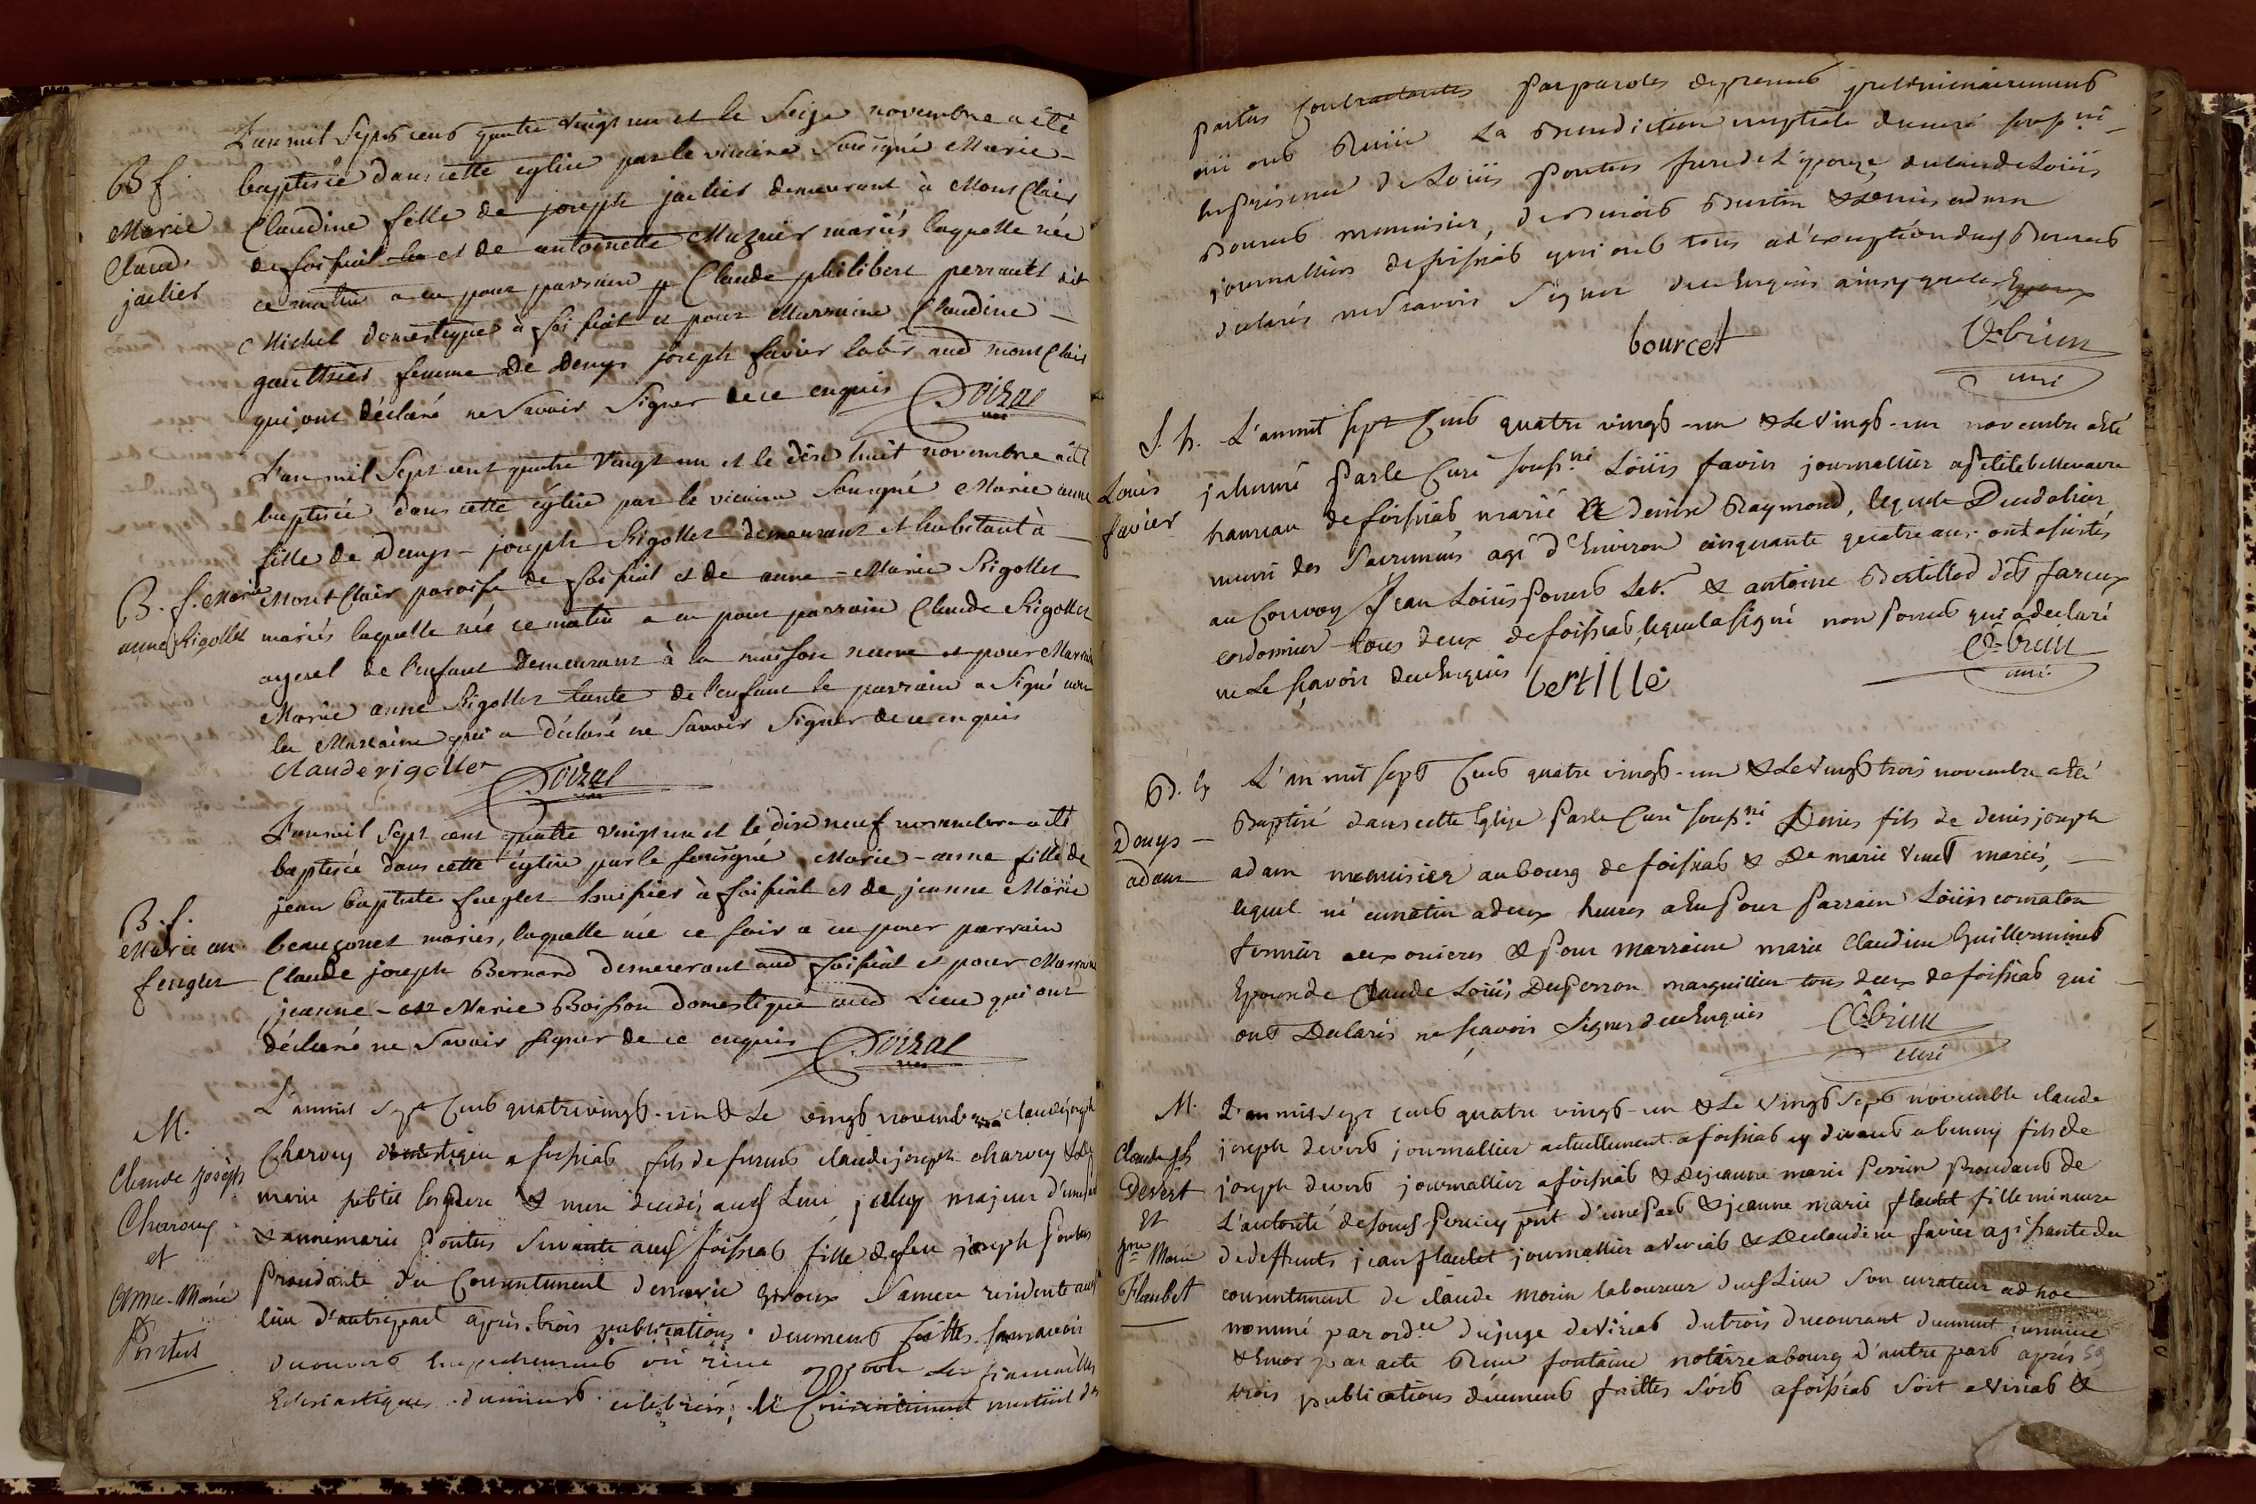 L'an mil sept cens quatre vingt un et le seize novembre a été
B f.
Marie
Claud.
jaclier
baptisée dans cette église par le vicaire soussigné Marie -
Claudine fille de joseph jaclier demeurant à Mont Clair
de foissiat et de antoinette Muznier mariés laquelle née
ce matin a eu pour parrain Claude philibert perrault dit
Michel domestique à foissiat et pour Marraine Claudine -
gauthier femme de Denys joseph favier lab.r aud mont Clair
qui ont déclaré ne savoir signer de ce enquis Doizal
vic
L'an mil sept cent quatre vingt un et le dix huit novembre a été
baptisée dans cette église par le vicaire soussigné Marie anne
fille de Denys - joseph Rigollet demeurant et habitant à
B. f. Marie
anne Rigollet
Mont Clair paroisse de foissiat et de anne - Marie Rigollet
mariés laquelle née ce matin a eu pour parrain Claude Rigollet
ayeul de l'enfant demeurant à la maison neuve et pour Marraine
Marie anne Rigollet tante de l'enfant le parrain a signé non
la Marraine qui a déclaré ne savoir signer de ce enquis
Claude rigollet Doizal
vic
L'an mil sept cent quatre vingt un et le dix neuf novembre a été
baptisée dans cette église par le sousigné Marie - anne fille de
jean baptiste huissier à foissiat et de jeanne Marie
B. f.
Marie an.
mariés, laquelle née ce soir a eu pour parrain
Claude joseph Bernard demeurant aud foissiat et pour Marraine
jeanne - Marie Boisson domestique aud Lieu qui ont
déclaré ne savoir signer de ce enquis Doizal
vic
M.
Claude joseph
Charvey
et
Anne-Marie
Pontus
L'an mil sept Cens quatre vingt-un & Le vingt novembre claude joseph
Charvey domestique a foissiat fils de furent claude joseph charvey & de
marie petit ses pere & mere decedés aud Lieu majeur d'une part
& anne marie Pontus servante aud foissiat fille de feu joseph Pontus
Procedante du Consentement de marie sa mere residente aud
lieu d'autre part après trois publications duement faittes sans avoir
decouvert Empechement ou rien opposé les fiancailles
Eclesiastiques duement celebrées, le Consentement mutuel des
parties Contractantes par paroles de present preliminairement
oui ont Reçu La Benediction nuptiale du curé souss.né
En presence de Loüis Pontus frere de L'epouze, de claude Loüis
Bourcet menuisier, de Benoit Burtin & Denis adam
journalliers de foissiat qui ont tous a l'exception dud Bourcet
declarés ne savoir signer de ce Enquis ainsy que les Epoux
bourcet C. brun
curé
S. h.
Louis
favier
L'an mil sept Cens quatre vingt-un & Le vingt-un novembre a été
jnhumé Par le Curé souss.né Loüis favier journallier a Petite bellevavre
hameau de foissiat marié a Denise Raymond, lequel Decedé hier
muni des sacremens agé d'Environ cinquante quatre ans. ont assistés
au Convoy Jean Loüis Poncet Lab.r & antoine Bertillod dit fareux
cordonnier tous deux de foissiat, lequel a signé non Poncet qui a declaré
ne Le sçavoir de ce Enquis bertillé C. brun
curé
B. h
Denys -
adam
L'an mil sept Cens quatre vingt-un & Le vingt trois novembre a été
Baptisé dans cette Eglise Par le Curé souss.né Denis fils de denis joseph
adam menuisier au bourg de foissiat & De marie Venet mariés, -
lequel né ce matin a deux heures a Eu Pour Parrain Loüis comaton
fermier aux & Pour marraine marie claudine Guillerminet
Epouse de Claude Loüis Duperron marguillier tous deux de foissiat qui
ont Declarés ne sçavoir signer de ce Enquis C. brun
curé
M.
Claude jph
Devert
et
j.ne Marie
Flaubet
L'an mil sept cens quatre vingt-un & Le vingt sept novembre claude
joseph devert journallier actuellement a foissiat cy devant a beny fils de
joseph devert journallier a foissiat & De jeanne marie Perrin Procedant de
L'autorité de sond Pere icy p.nt d'une Part & jeanne marie flaubet fille mineure
de deffunts jean flaubet journallier a viriat & De claudine favier agissante du
consentement de claude morin laboureur dud Lieu son curateur ad hoc
nommé par ord.ce du juge de viriat du trois du courant
par acte Reçu fontaine notaire a bourg d'autre part après
trois publications duement faittes soit a foissiat soit a viriat &